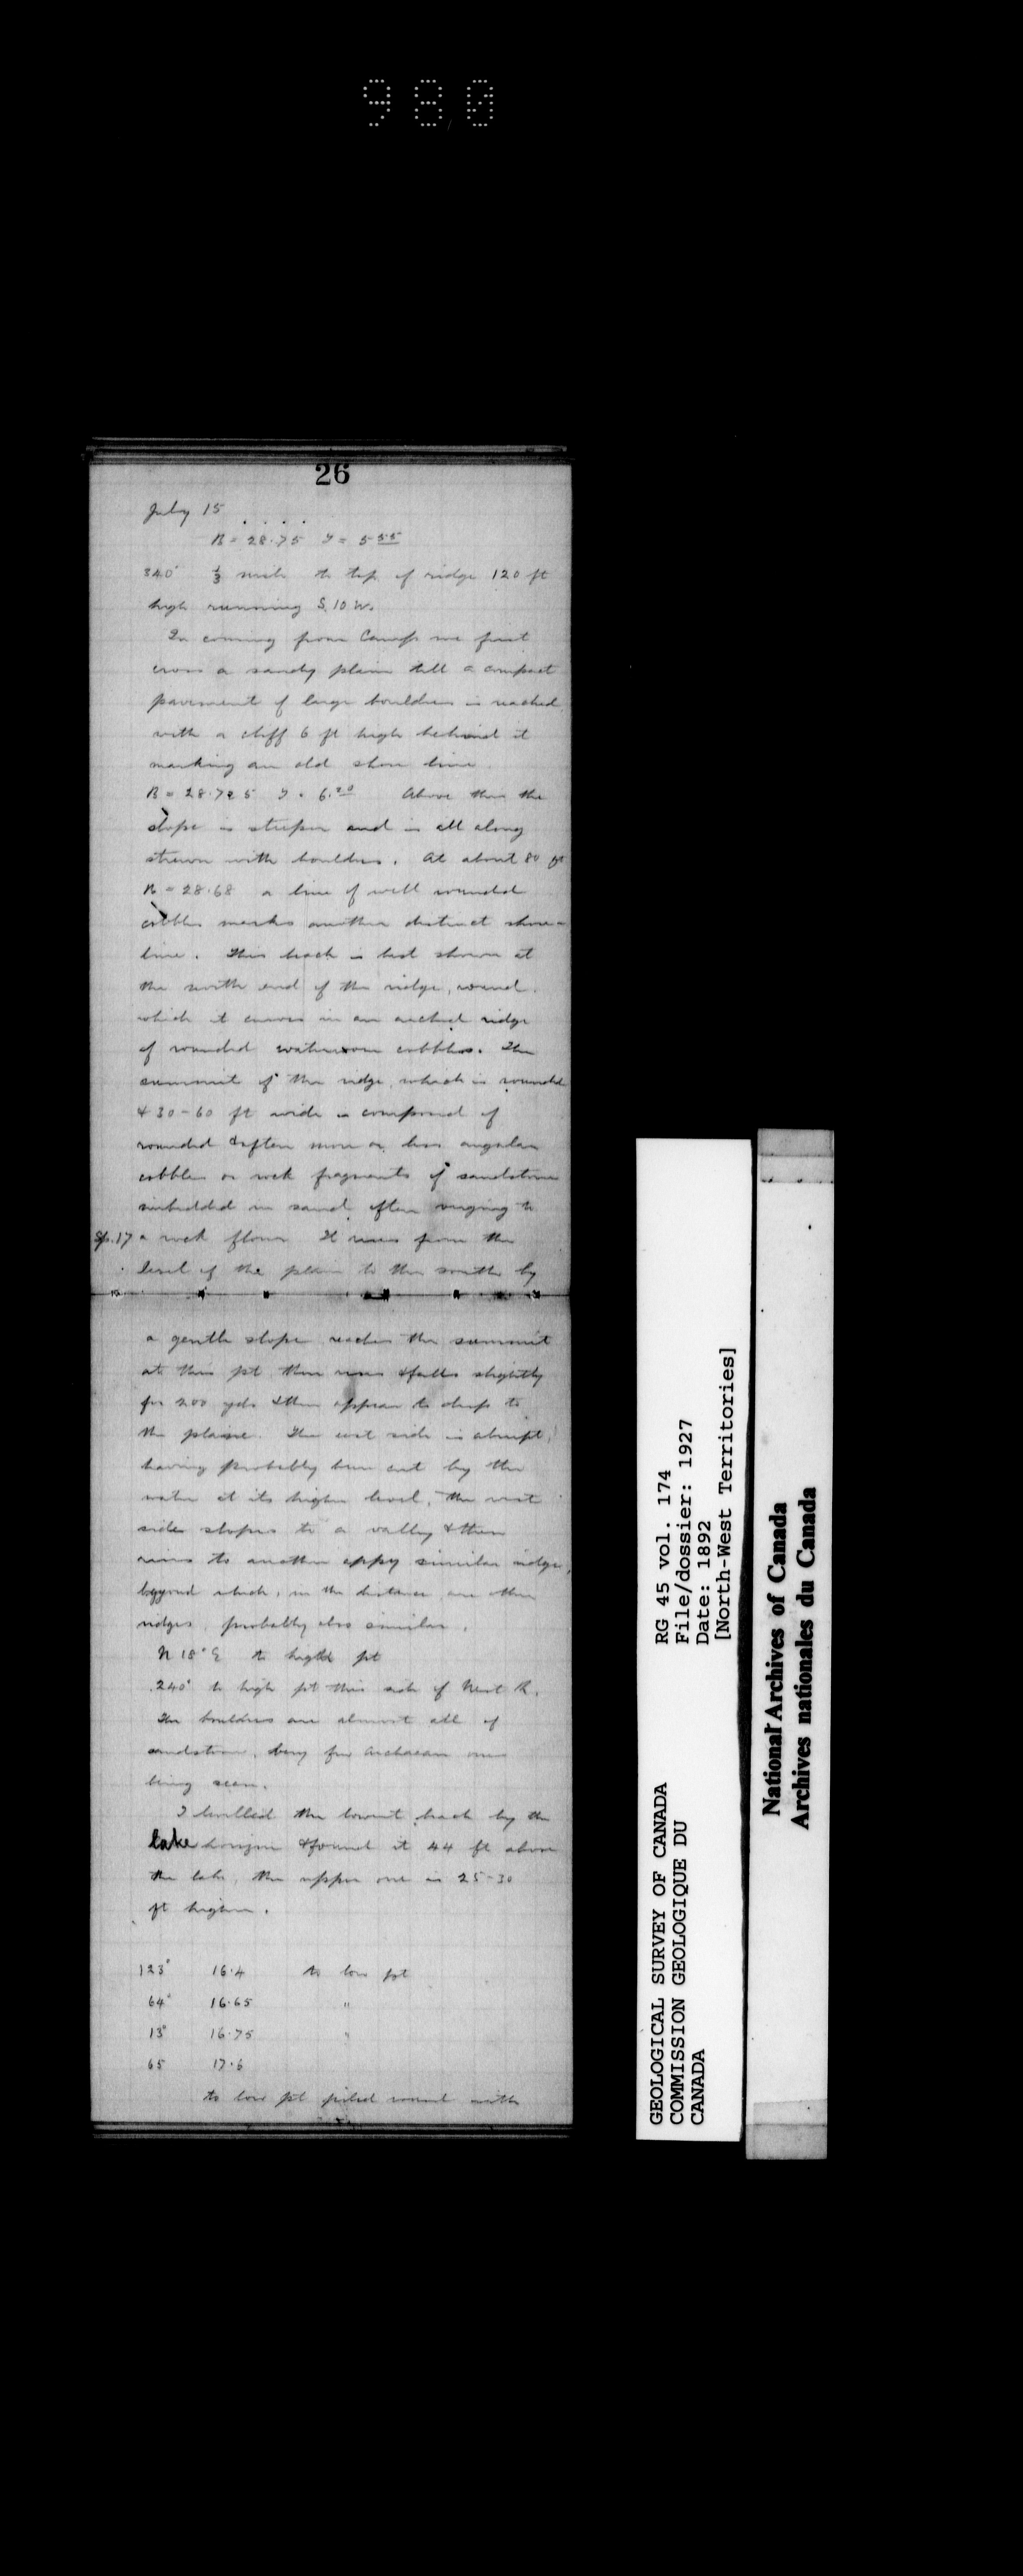 980
26
July 15
B = 28.75 T = 5 55
340° ⅓ mile to top of ridge 120 ft
high running S. 10 W.
In coming from Camp we first
cross a sandy plain till a compact
pavement of large boulders is reached
with a cliff 6 ft high behind it
marking an old shore line.
B = 28.725 T = 6.20 Above this the
slope is steeper and is all along
strewn with boulders. At about 80 ft
B = 28.68 a line of well rounded
cobbles marks another distinct shore-
line. This beach is best shown at
the north end of the ridge, round
which it curves in an arched ridge
of rounded waterworn cobbles. The
summit of the ridge, which is rounded
& 30-60 ft wide is composed of
rounded & often more or less angular
cobbles or rock fragments of sandstone
imbedded in sand often verging to
Sp. 17 a rock flour. It rises from the
level of the plain to the south by
a gentle slope reaches the summit
at this pt then rises & falls slightly
for 200 yds & then appears to drop to
the plain. The east side is abrupt,
having probably been cut by the
water at its higher level, the west
side slopes to a valley & then
rises to another appy similar ridge,
beyond which, in the distance are other
ridges, probably also similar.
N 18° E to high pt
240° to high pt this side of next R.
The boulders are almost all of
sandstone, very few Archaean ones
being seen.
I levelled the lowest beach by the
lake horizon & found it 44 ft above
the lake, the upper one is 25-30
ft higher.
123° 16.4 to low pt
64° 16.65 "
13° 16.75 "
65 17.6
to low pt piled round with
GEOLOGICAL SURVEY OF CANADA
COMMISSION GEOLOGIQUE DU
CANADA
RG 45 vol. 174
File/dossier: 1927
Date: 1892
[North-West Territories]
National Archives of Canada
Archives nationales du Canada